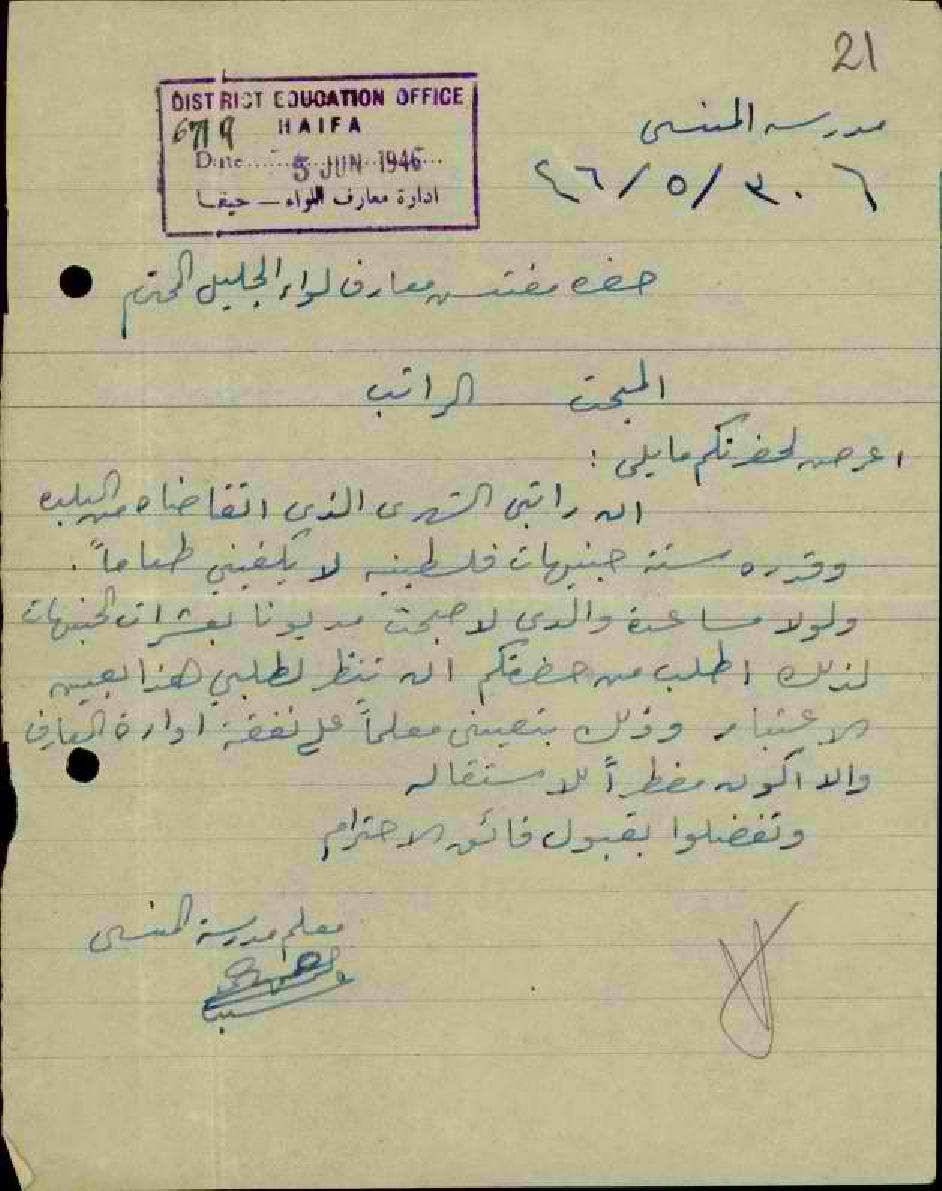 21
DISTRICT EDUCATION OFFICE
HAIFA
6719
Date 5 JUN 1946
ادارة معارف اللواء — حيفا
مدرسة المنسي
٤٦/٥/٣٠
حضرة مفتش معارف لواء الجليل المحترم
المبحث الراتب
اعرض لحضرتكم ما يلي :
ان راتبي الشهري الذي اتقاضاه من البلده
وقدره ستة جنيهات فلسطينيه لا يكفيني طعاماً .
ولولا مساعدة والدي لاصبحت مديونا بعشرات الجنيهات
لذلك اطلب من حضرتكم ان تنظر لطلبي هذا بعين
الاعتبار وذلك بتعييني معلماً على نفقة ادارة المعارف
والا اكون مضطراً للاستقاله
وتفضلوا بقبول فائق الاحترام
معلم مدرسة المنسي